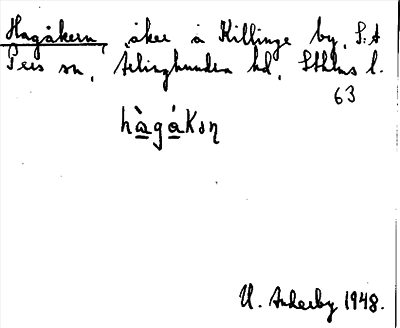 Hagåkern, åker å Killinge by, S:t
Pers sn, Ärlinghundra hd, Sthlms l.
63
hàgákəṇ
U. Ankerby 1948.